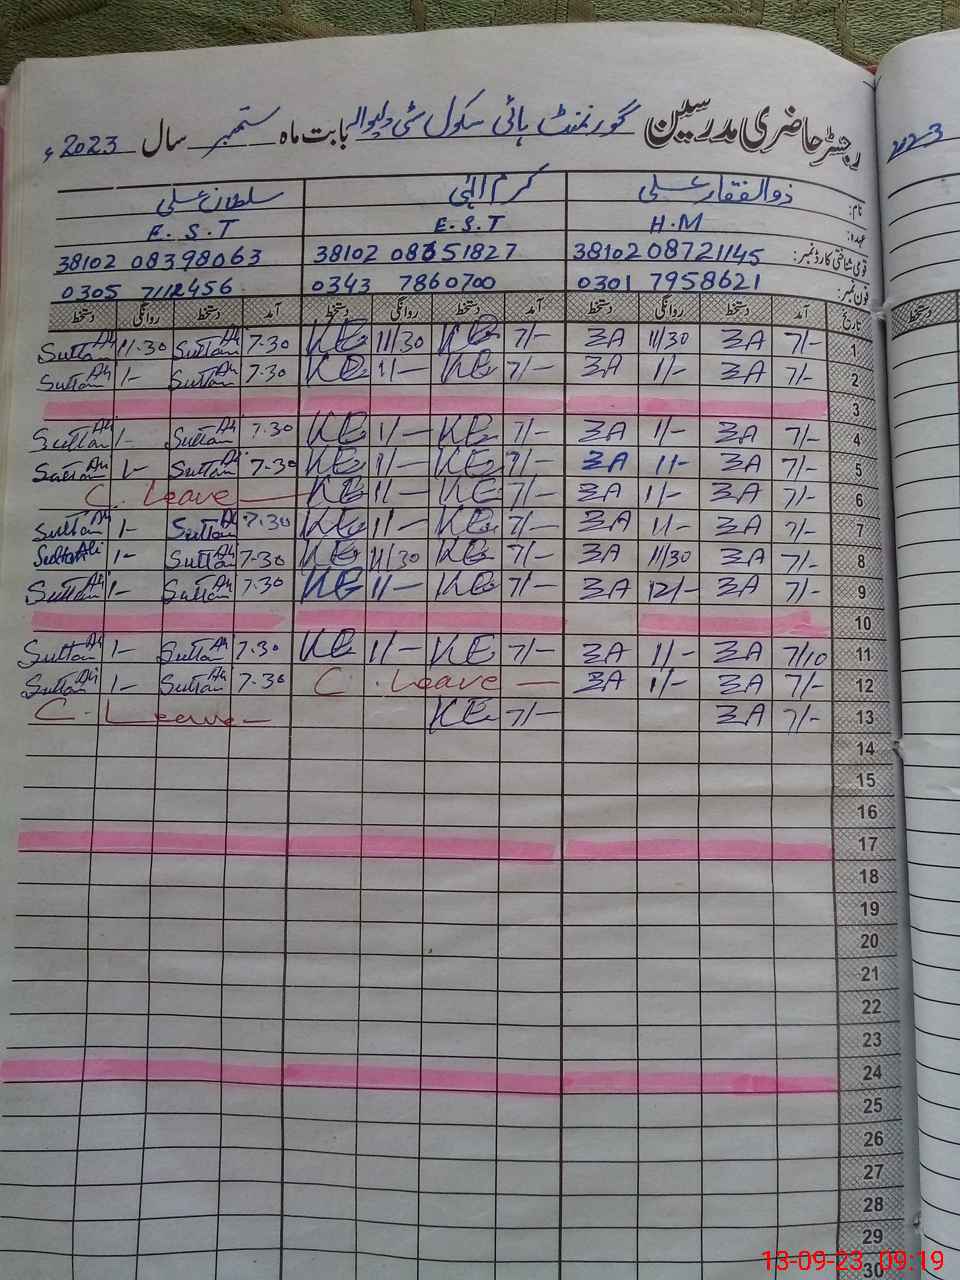 رجسٹر حاضری مدرسین گورنمنٹ ہائی سکول سٹی دلیوالہ بابت ماہ ستمبر سال 2023ء
نام: ذوالفقار علی کرم الٰہی سلطان علی
عہدہ: H.M E.S.T E.S.T
قومی شناختی کارڈ نمبر: 38102 08721145 38102 08651827 38102 08398063
فون نمبر: 0301 7958621 0343 7860700 0305 7112456
تاریخ آمد دستخط روانگی دستخط آمد دستخط روانگی دستخط آمد دستخط روانگی دستخط
1 7/- ZA 11/30 ZA 7/- KE 11/30 KE 7.30 Sultan Ali 11.30 Sultan Ali
2 7/- ZA 1/- ZA 7/- KE 1/- KE 7.30 Sultan Ali 1/- Sultan Ali
3
4 7/- ZA 1/- ZA 7/- KE 1/- KE 7.30 Sultan Ali 1/- Sultan Ali
5 7/- ZA 1/- ZA 7/- KE 1/- KE 7.30 Sultan Ali 1/- Sultan Ali
6 7/- ZA 1/- ZA 7/- KE 1/- KE C. Leave
7 7/- ZA 1/- ZA 7/- KE 1/- KE 7.30 Sultan Ali 1/- Sultan Ali
8 7/- ZA 11/30 ZA 7/- KE 11/30 KE 7.30 Sultan Ali 1/- Sultan Ali
9 7/- ZA 12/- ZA 7/- KE 1/- KE 7.30 Sultan Ali 1/- Sultan Ali
10
11 7/10 ZA 1/- ZA 7/- KE 1/- KE 7.30 Sultan Ali 1/- Sultan Ali
12 7/- ZA 1/- ZA C. Leave 7.30 Sultan Ali 1/- Sultan Ali
13 7/- ZA 7/- KE C. Leave
14
15
16
17
18
19
20
21
22
23
24
25
26
27
28
29
30
2023
دستخط
13-09-23 09:19